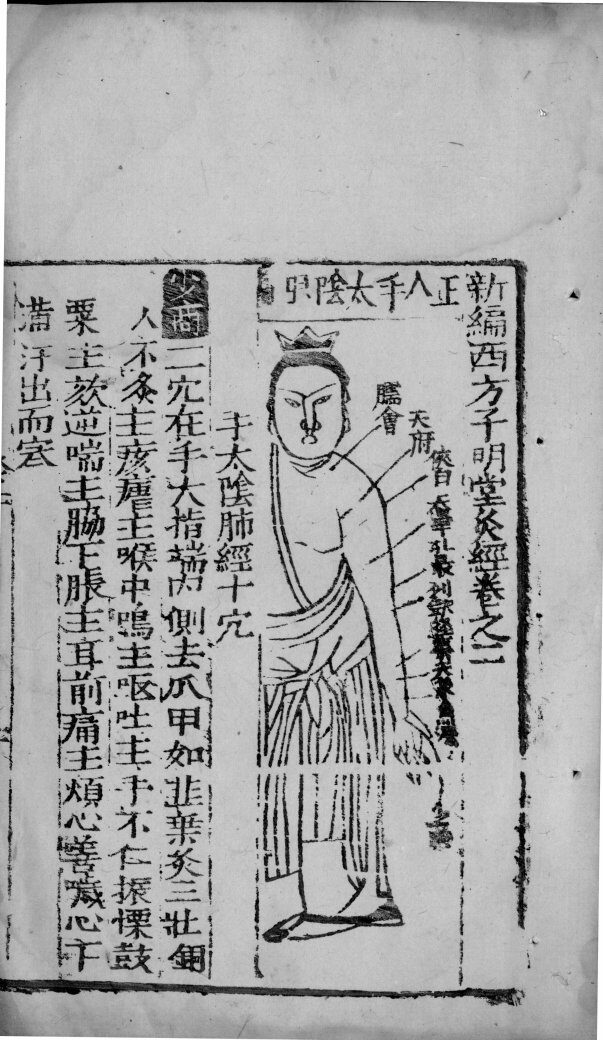 新編西方子明堂灸經卷之二
正人手太陰
臑會
天府
俠白
手太陰肺經十穴
少商二穴在手大指端內側去爪甲如韭葉灸三壯銅
人不灸主痎瘧主喉中鳴主嘔吐主手不仁振慄鼓
粟主欬逆喘主脇下脹主耳前痛主煩心善噦心下
滿汗出而寒